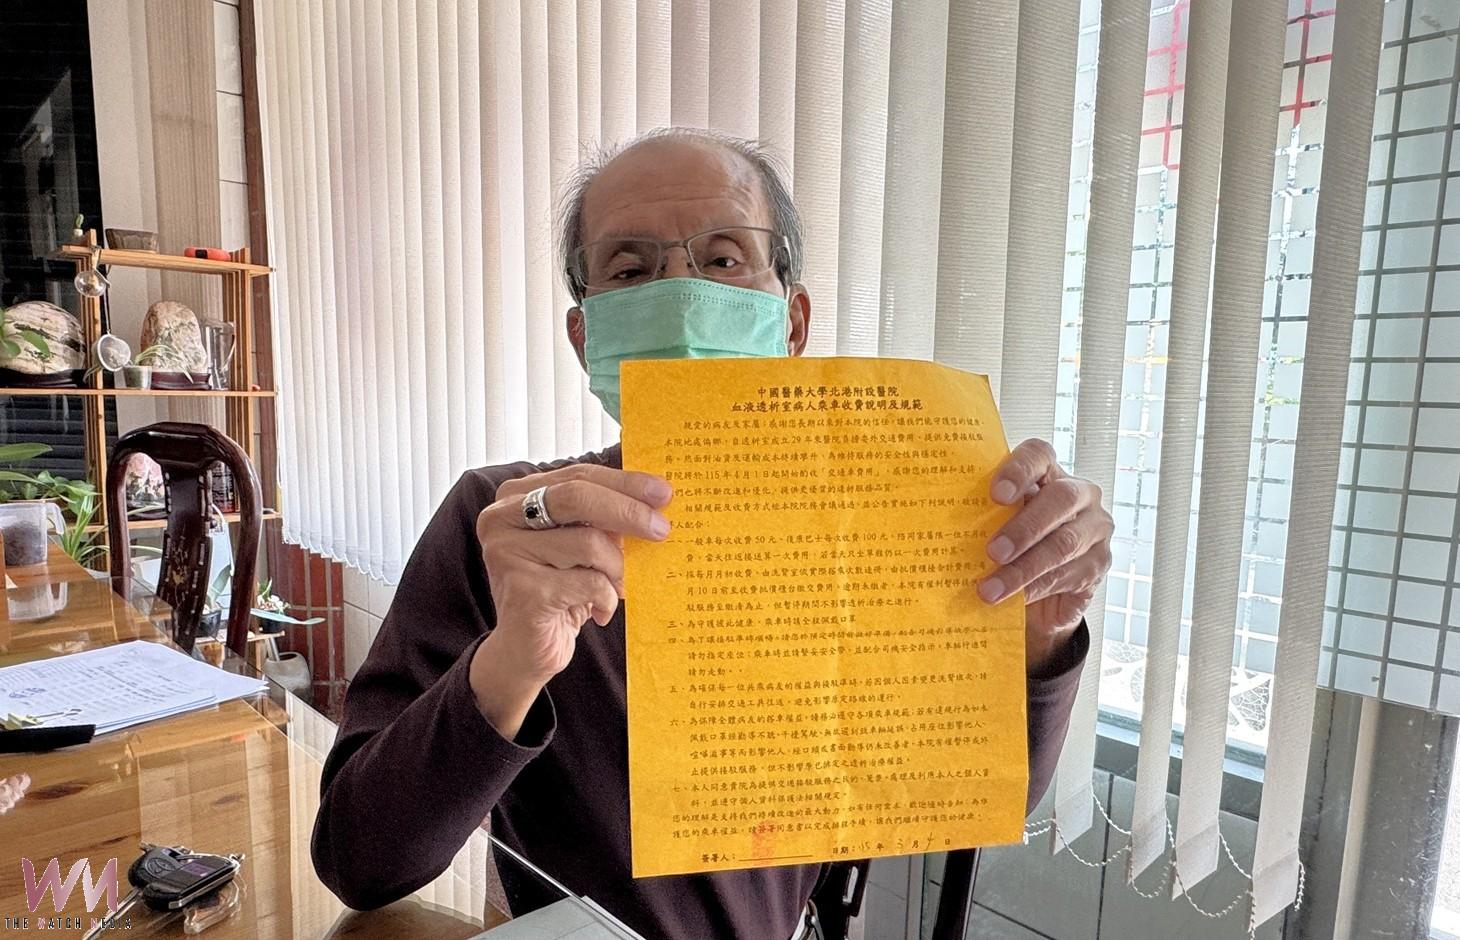 中國醫藥大學北港附設醫院
血液透析室病人乘車收費說明及規範
親愛的病友及家屬：感謝您長期以來對本院的信任，讓我們能守護您的健康。
本院地處偏鄉，自透析室成立29年來醫院負擔委外交通費用，提供免費接駁服
務。然面對油資及運輸成本持續攀升，為維持服務的安全性與穩定性，
醫院將於115年4月1日起開始酌收「交通車費用」，感謝您的理解和支持，
我們也將不斷改進和優化，提供更優質的透析服務品質。
相關規範及收費方式經本院院務會議通過，並公告實施如下列說明，敬請
人配合：
一、一般車每次收費50元、復康巴士每次收費100元，陪同家屬限一位不另收
費，當天往返接送算一次費用；若當天只坐單程仍以一次費用計算。
二、採每月月初收費，由洗腎室依實際搭乘次數造冊，由批價櫃檯合計費用；每
月10日前至收費批價櫃台繳交費用。逾期未繳者，本院有權利暫停提供接
駁服務至繳清為止，但暫停期間不影響透析治療之進行。
三、為守護彼此健康，乘車時請全程佩戴口罩
四、為了讓接駁準時順暢，請您於預定時間前做好準備，配合司機
請勿指定座位；乘車時並請繫妥安全帶，並配合司機安全指示，車輛行進間
請勿走動。
五、為確保每一位共乘病友的權益與接駁準時，若因個人因素變更洗腎班次，請
自行安排交通工具往返，避免影響原定路線的運行。
六、為保障全體病友的搭車權益，請務必遵守各項乘車規範；若有違規行為如未
佩戴口罩經勸導不聽、干擾駕駛、無故遲到致車輛延誤、占用座位影響他人、
喧嘩滋事等而影響他人，經口頭或書面勸導仍未改善者，本院有權暫停或終
止提供接駁服務，但不影響原已排定之透析治療權益。
七、本人同意貴院為提供交通接駁服務之目的，蒐集、處理及利用本人之個人資
料，並遵守個人資料保護法相關規定。
您的理解是支持我們持續改進的最大動力，如有任何需求，歡迎隨時告知；為維
護您的乘車權益，請簽署同意書以完成辦理手續，讓我們繼續守護您的健康。
簽署人： 日期：115年3月4日
WM
THE WATCH MEDIA